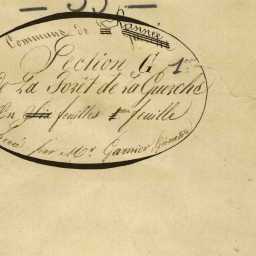 - 33 -
Commune de Rannée
Section G 1re
de La Forêt de la Guerche
En Six feuilles 1re feuille
par Mr Garnier Géomètre